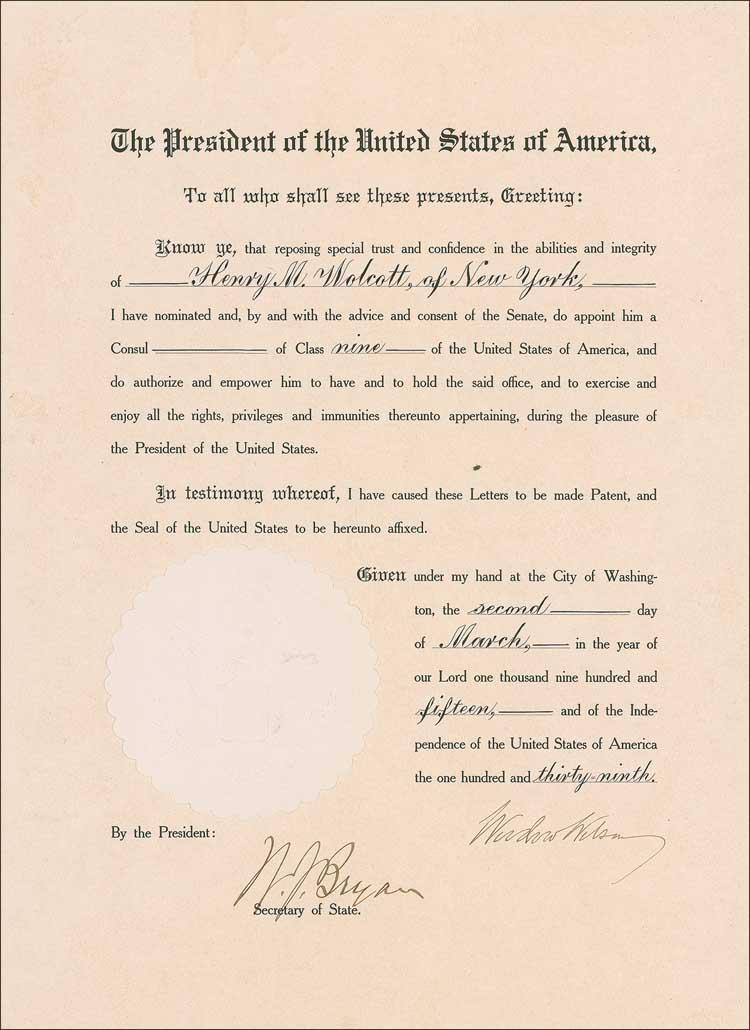 The President of the United States of America,
To all who shall see these presents, Greeting:
Know ye, that reposing special trust and confidence in the abilities and integrity
of Henry M. Wolcott, of New York,
I have nominated and, by and with the advice and consent of the Senate, do appoint him a
Consul of Class nine of the United States of America, and
do authorize and empower him to have and to hold the said office, and to exercise and
enjoy all the rights, privileges and immunities thereunto appertaining, during the pleasure of
the President of the United States.
In testimony whereof, I have caused these Letters to be made Patent, and
the Seal of the United States to be hereunto affixed.
Given under my hand at the City of Washing-
ton, the second day
of March, in the year of
our Lord one thousand nine hundred and
fifteen, and of the Inde-
pendence of the United States of America
the one hundred and thirty-ninth.
Woodrow Wilson
By the President:
W. J. Bryan
Secretary of State.